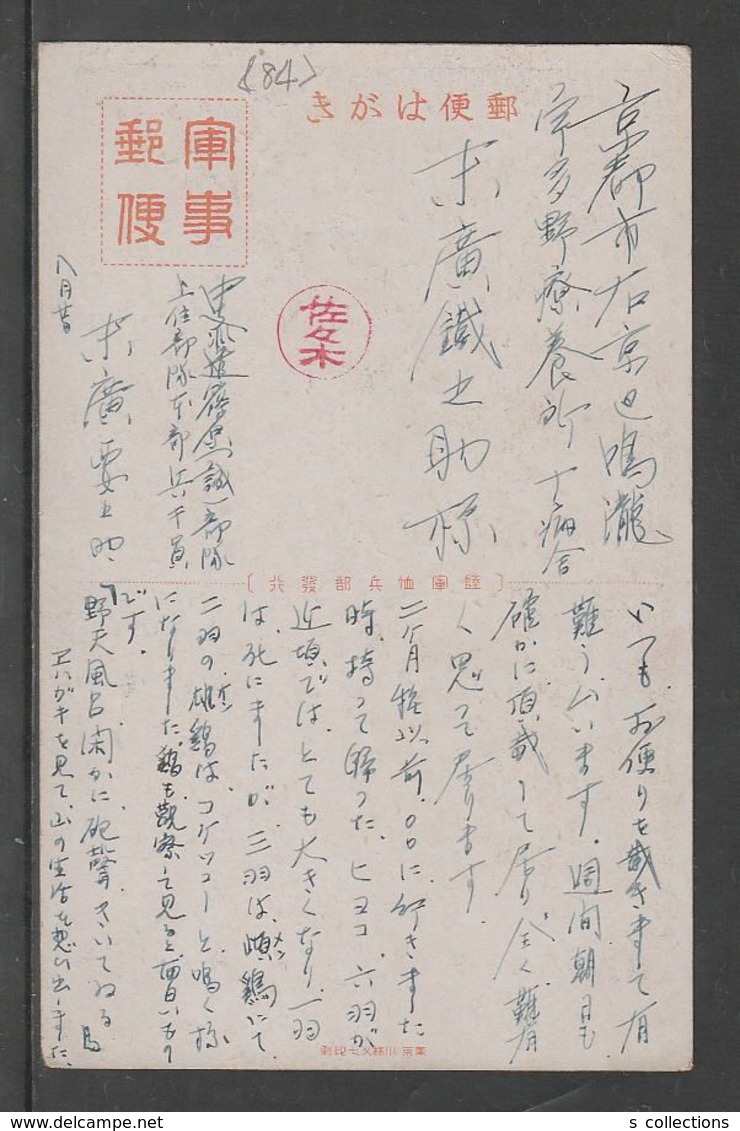 (84)
郵便はがき
軍事
郵便
京都市右京区鳴滝
宇多野療養所十病舎
末廣鐵之助様
佐々木
中支派遣 誠一部隊
上住部隊本部兵千員
末廣要之助
八月廿
〔陸軍恤兵部發行〕
いつも、お便りを戴きまして有
難うムいます。週間朝日も
確かに頂戴して居り全く難有
く思って居ります。
二ヶ月程以前、〇〇に行きました
時、持って帰った、ヒヨコ、六羽が
近頃では、とても大きくなり、一羽
は、死にましたが、三羽は雌鶏にて
メン
二羽の雄鶏は、コケツコーと鳴く様
オン
になりました、鶏も観察して見ると面白いもの
です。
野天風呂 閑かに砲聲きいてゐる
ヱハガキを見て、山の生活を想ひ出しました、
東京 小林又七印刷
s collections